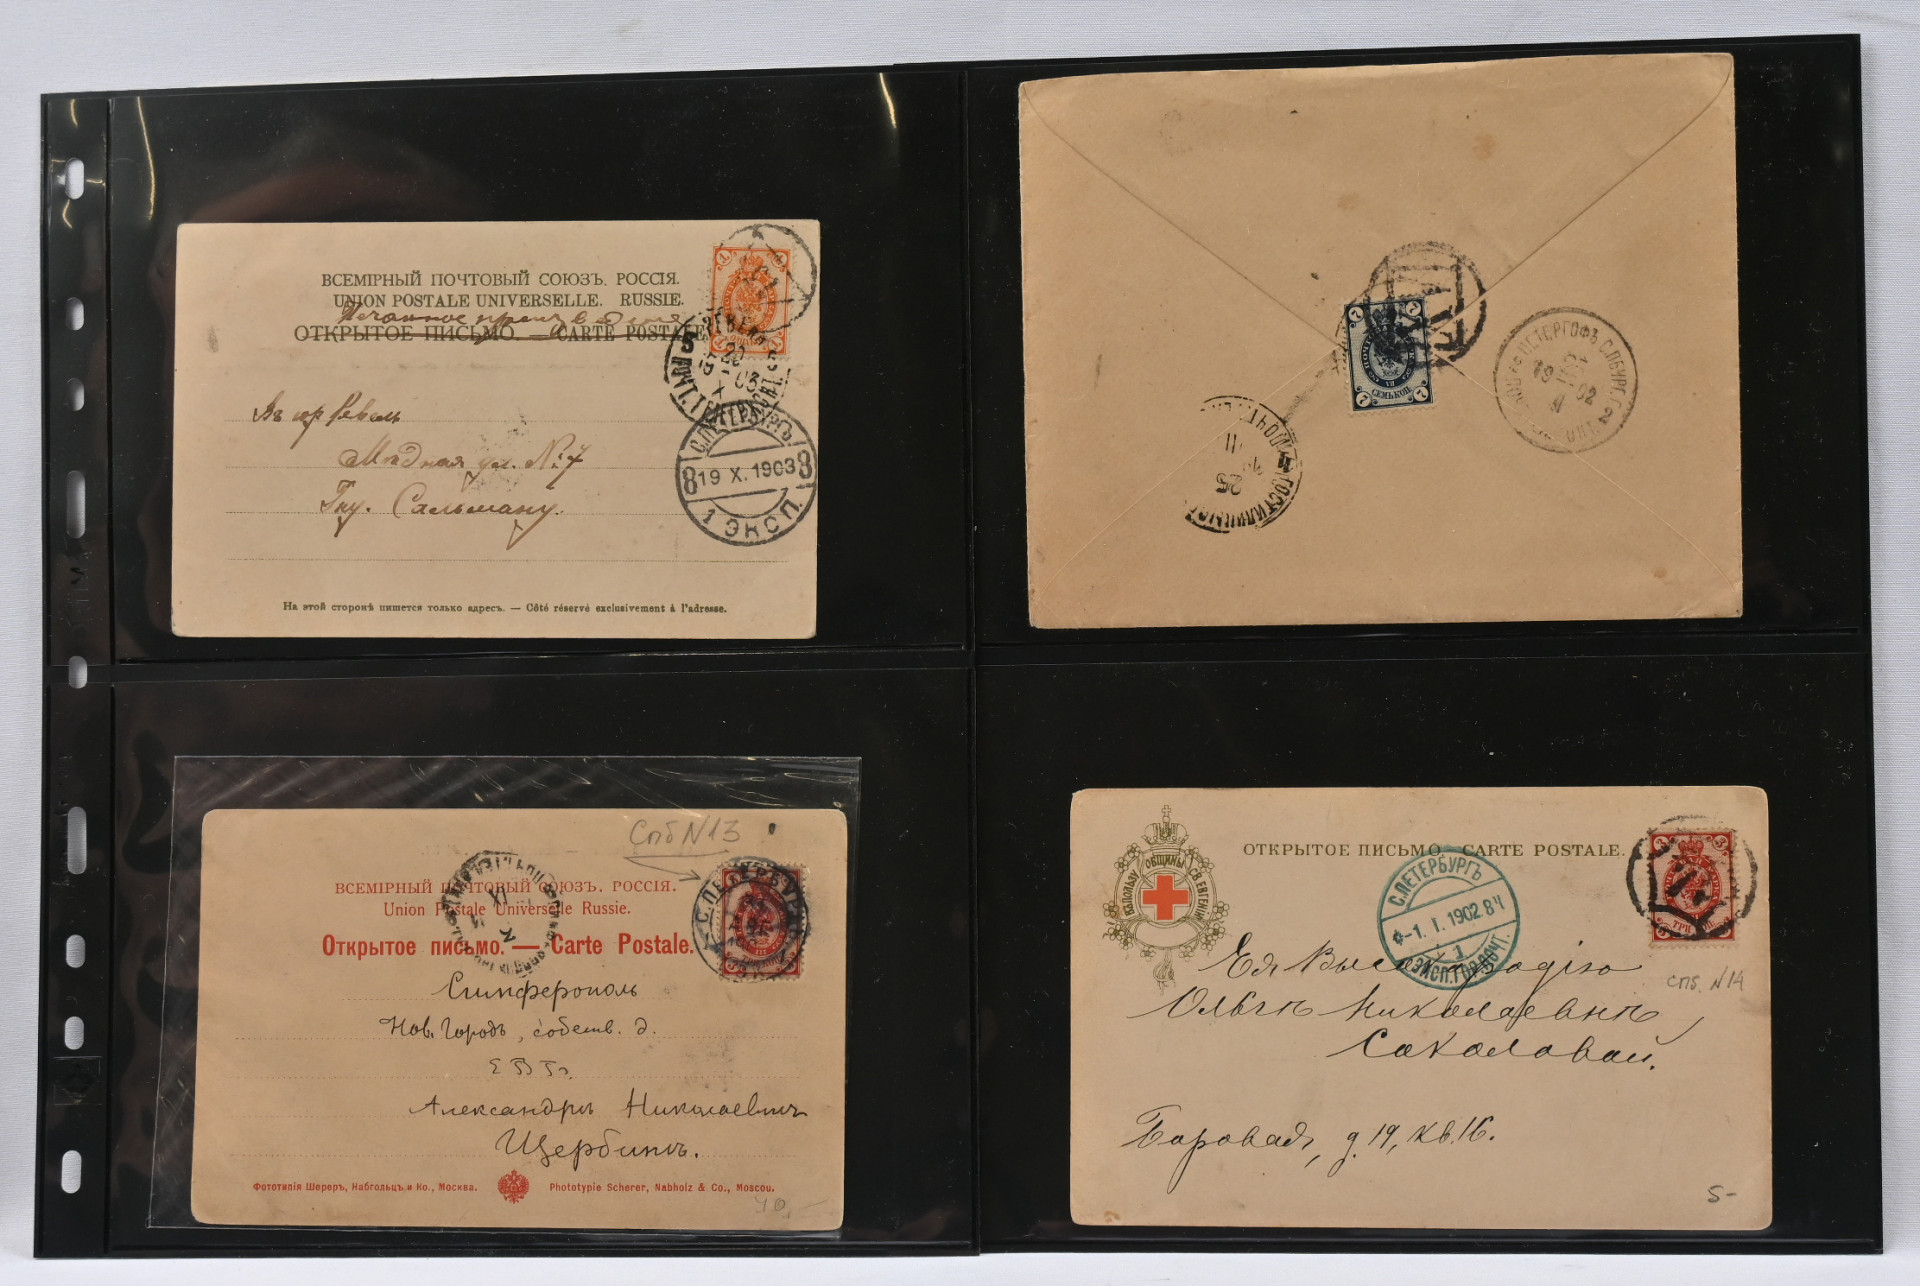 ВСЕМІРНЫЙ ПОЧТОВЫЙ СОЮЗЪ. РОССІЯ.
UNION POSTALE UNIVERSELLE. RUSSIE.
ОТКРЫТОЕ ПИСЬМО. — CARTE POSTALE
Въ гор Ревель
Мѣдная ул. №7
Гну. Сальману.
С.ПЕТЕРБУРГЪ
8 19 X. 1903 8
1 ЭКСП.
На этой сторонѣ пишется только адресъ. — Côté réservé exclusivement à l'adresse.
7 7
СЕМЬ КОП.
7
ПЕТЕРГОФЪ С.ПБУРГ. Г.
2
25
СПб N13
ВСЕМІРНЫЙ ПОЧТОВЫЙ СОЮЗЪ. РОССІЯ.
Union Postale Universelle Russie.
Открытое письмо. — Carte Postale.
С.ПЕТЕРБУРГЪ
Симферополь
Нов. Городъ, собств. д.
ЕВБ.
Александръ Николаевичъ
Щербинъ.
Фототипія Шереръ, Набгольцъ и Ко., Москва.
Phototypie Scherer, Nabholz & Co., Moscou.
40.—
ВЪ ПОЛЬЗУ ОБЩИНЫ СВ. ЕВГЕНІИ
ОТКРЫТОЕ ПИСЬМО. CARTE POSTALE.
С.ПЕТЕРБУРГЪ
1. I. 1902 8Ч
1
ЭКСП.ГОР.ПОЧТ.
3 3
ТРИ КОП.
СПБ. N14
Ея
Ольгѣ Николаевнѣ
Соколовой.
Боровая, д. 19, кв. 16.
5-